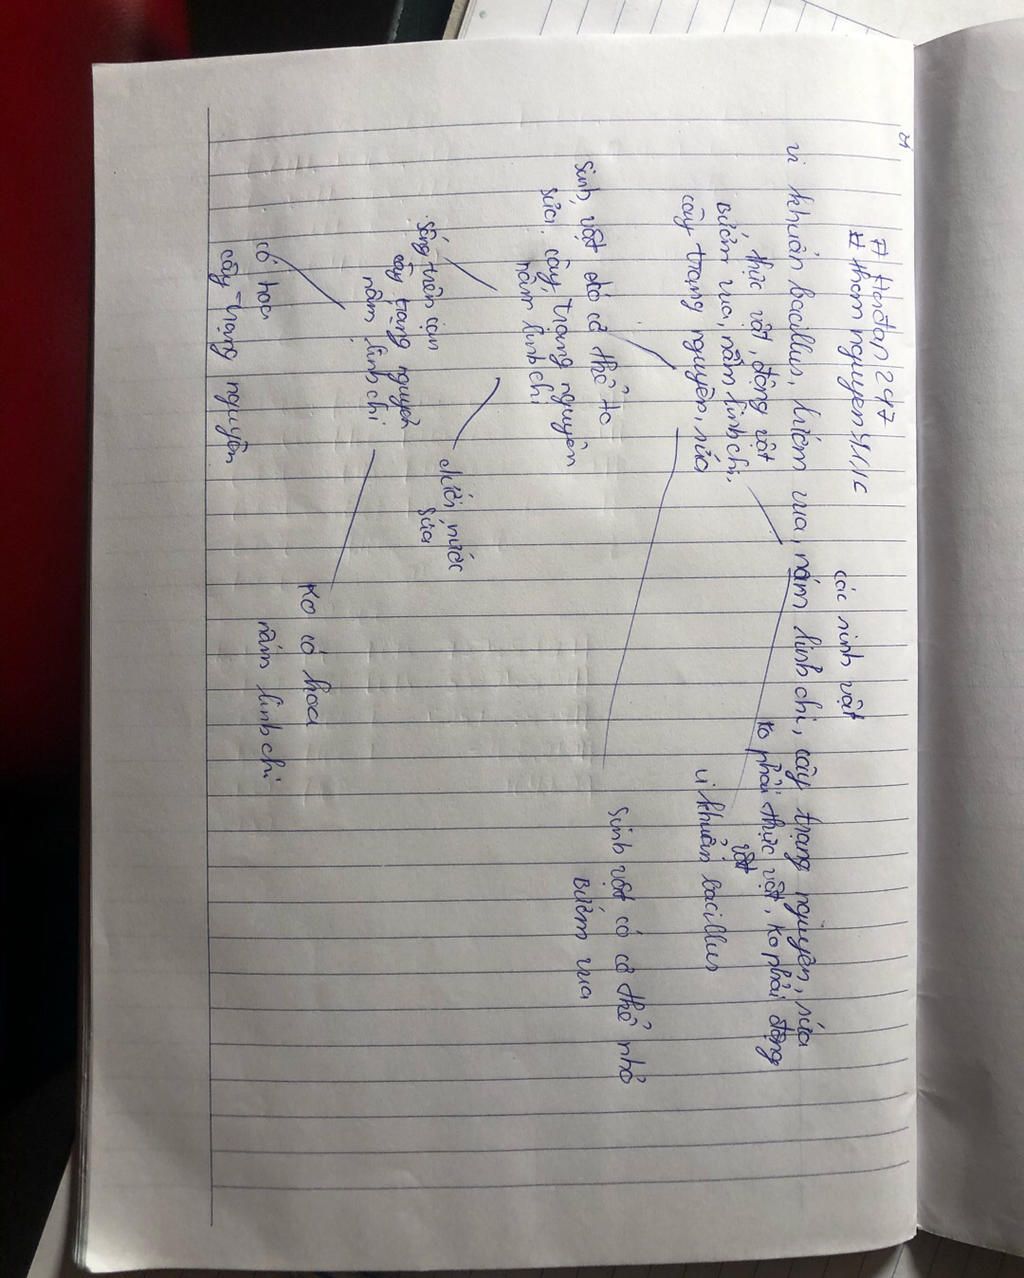 21
# Hoidan247
# thamnguyen4111c
các sinh vật
vi khuẩn bacillus, bướm vua, nấm linh chi, cây trạng nguyên, sứa
thực vật, động vật
Bướm vua, nấm linh chi,
cây trạng nguyên, sứa
ko phải thực vật, ko phải động
vật
vi khuẩn bacillus
sinh vật đó có thể to
sứa, cây trạng nguyên
nấm linh chi
sinh vật có cơ thể nhỏ
Bướm vua
sống trên cạn
cây trạng nguyên
nấm linh chi
dưới nước
sứa
có hoa
cây trạng nguyên
ko có hoa
nấm linh chi